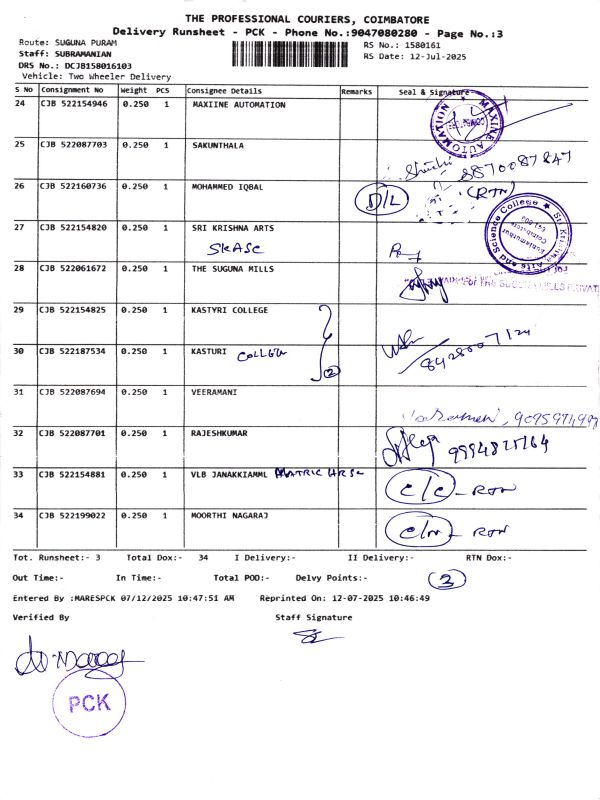 THE PROFESSIONAL COURIERS, COIMBATORE
Delivery Runsheet - PCK - Phone No.:9047080280 - Page No.:3
Route: SUGUNA PURAM
RS No.: 1580161
Staff: SUBRAMANIAN
RS Date: 12-Jul-2025
DRS No.: DCJB158016103
Vehicle: Two Wheeler Delivery
S No Consignment No Weight PCS Consignee Details Remarks Seal & Signature
24 CJB 522154946 0.250 1 MAXIINE AUTOMATION
MAXINE AUTOMATION
25 CJB 522087703 0.250 1 SAKUNTHALA
8870087847
26 CJB 522160736 0.250 1 MOHAMMED IQBAL D/L (RTN)
27 CJB 522154820 0.250 1 SRI KRISHNA ARTS
SKASC
Sri Krishna Arts and Science College
Coimbatore
28 CJB 522061672 0.250 1 THE SUGUNA MILLS
For THE SUGUNA MILLS PRIVAT
29 CJB 522154825 0.250 1 KASTYRI COLLEGE
30 CJB 522187534 0.250 1 KASTURI COLLEGE
2
8428007124
31 CJB 522087694 0.250 1 VEERAMANI
32 CJB 522087701 0.250 1 RAJESHKUMAR
33 CJB 522154881 0.250 1 VLB JANAKKIAMML MATRIC HR SC C/C - RTN
34 CJB 522199022 0.250 1 MOORTHI NAGARAJ C/N - RTN
Tot. Runsheet:- 3 Total Dox:- 34 I Delivery:- II Delivery:- RTN Dox:-
Out Time:- In Time:- Total POD:- Delvy Points:- 3
Entered By :MARESPCK 07/12/2025 10:47:51 AM Reprinted On: 12-07-2025 10:46:49
Verified By Staff Signature
PCK